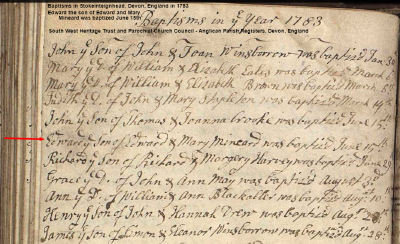 Baptisms in Stokeinteignhead, Devon, England in 1783
Edward the son of Edward and Mary
Mineard was baptized June 15th
Baptisms in yͤ Year 1783
South West Heritage Trust and Parochial Church Council - Anglican Parish Registers, Devon, England
John yͤ Son of John & Joan Winsborrow was baptizd Jan 30
Mary yͤ D. of William & Elizabth was baptizd March 6
Mary yͤ D. of William & Elizabth Brown was baptizd March
Judith yͤ D. of John & Mary Stapleton was baptizd March 19th
John yͤ Son of Thomas & Joanna Crooke was baptizd June 15th
Edward yͤ Son of Edward & Mary Mineard was baptizd June 15th
Richard yͤ Son of Richard & Margery Harvey was baptizd June 29
Grace yͤ D. of John & Ann May was baptizd Augst 3d
Ann yͤ D. of William & Ann Blackaller was baptizd Augst 10
Henry yͤ Son of John & Hannah was baptizd Augst 28th
James yͤ Son of Simon & Eleanor Winsborrow was baptizd Augst 28th